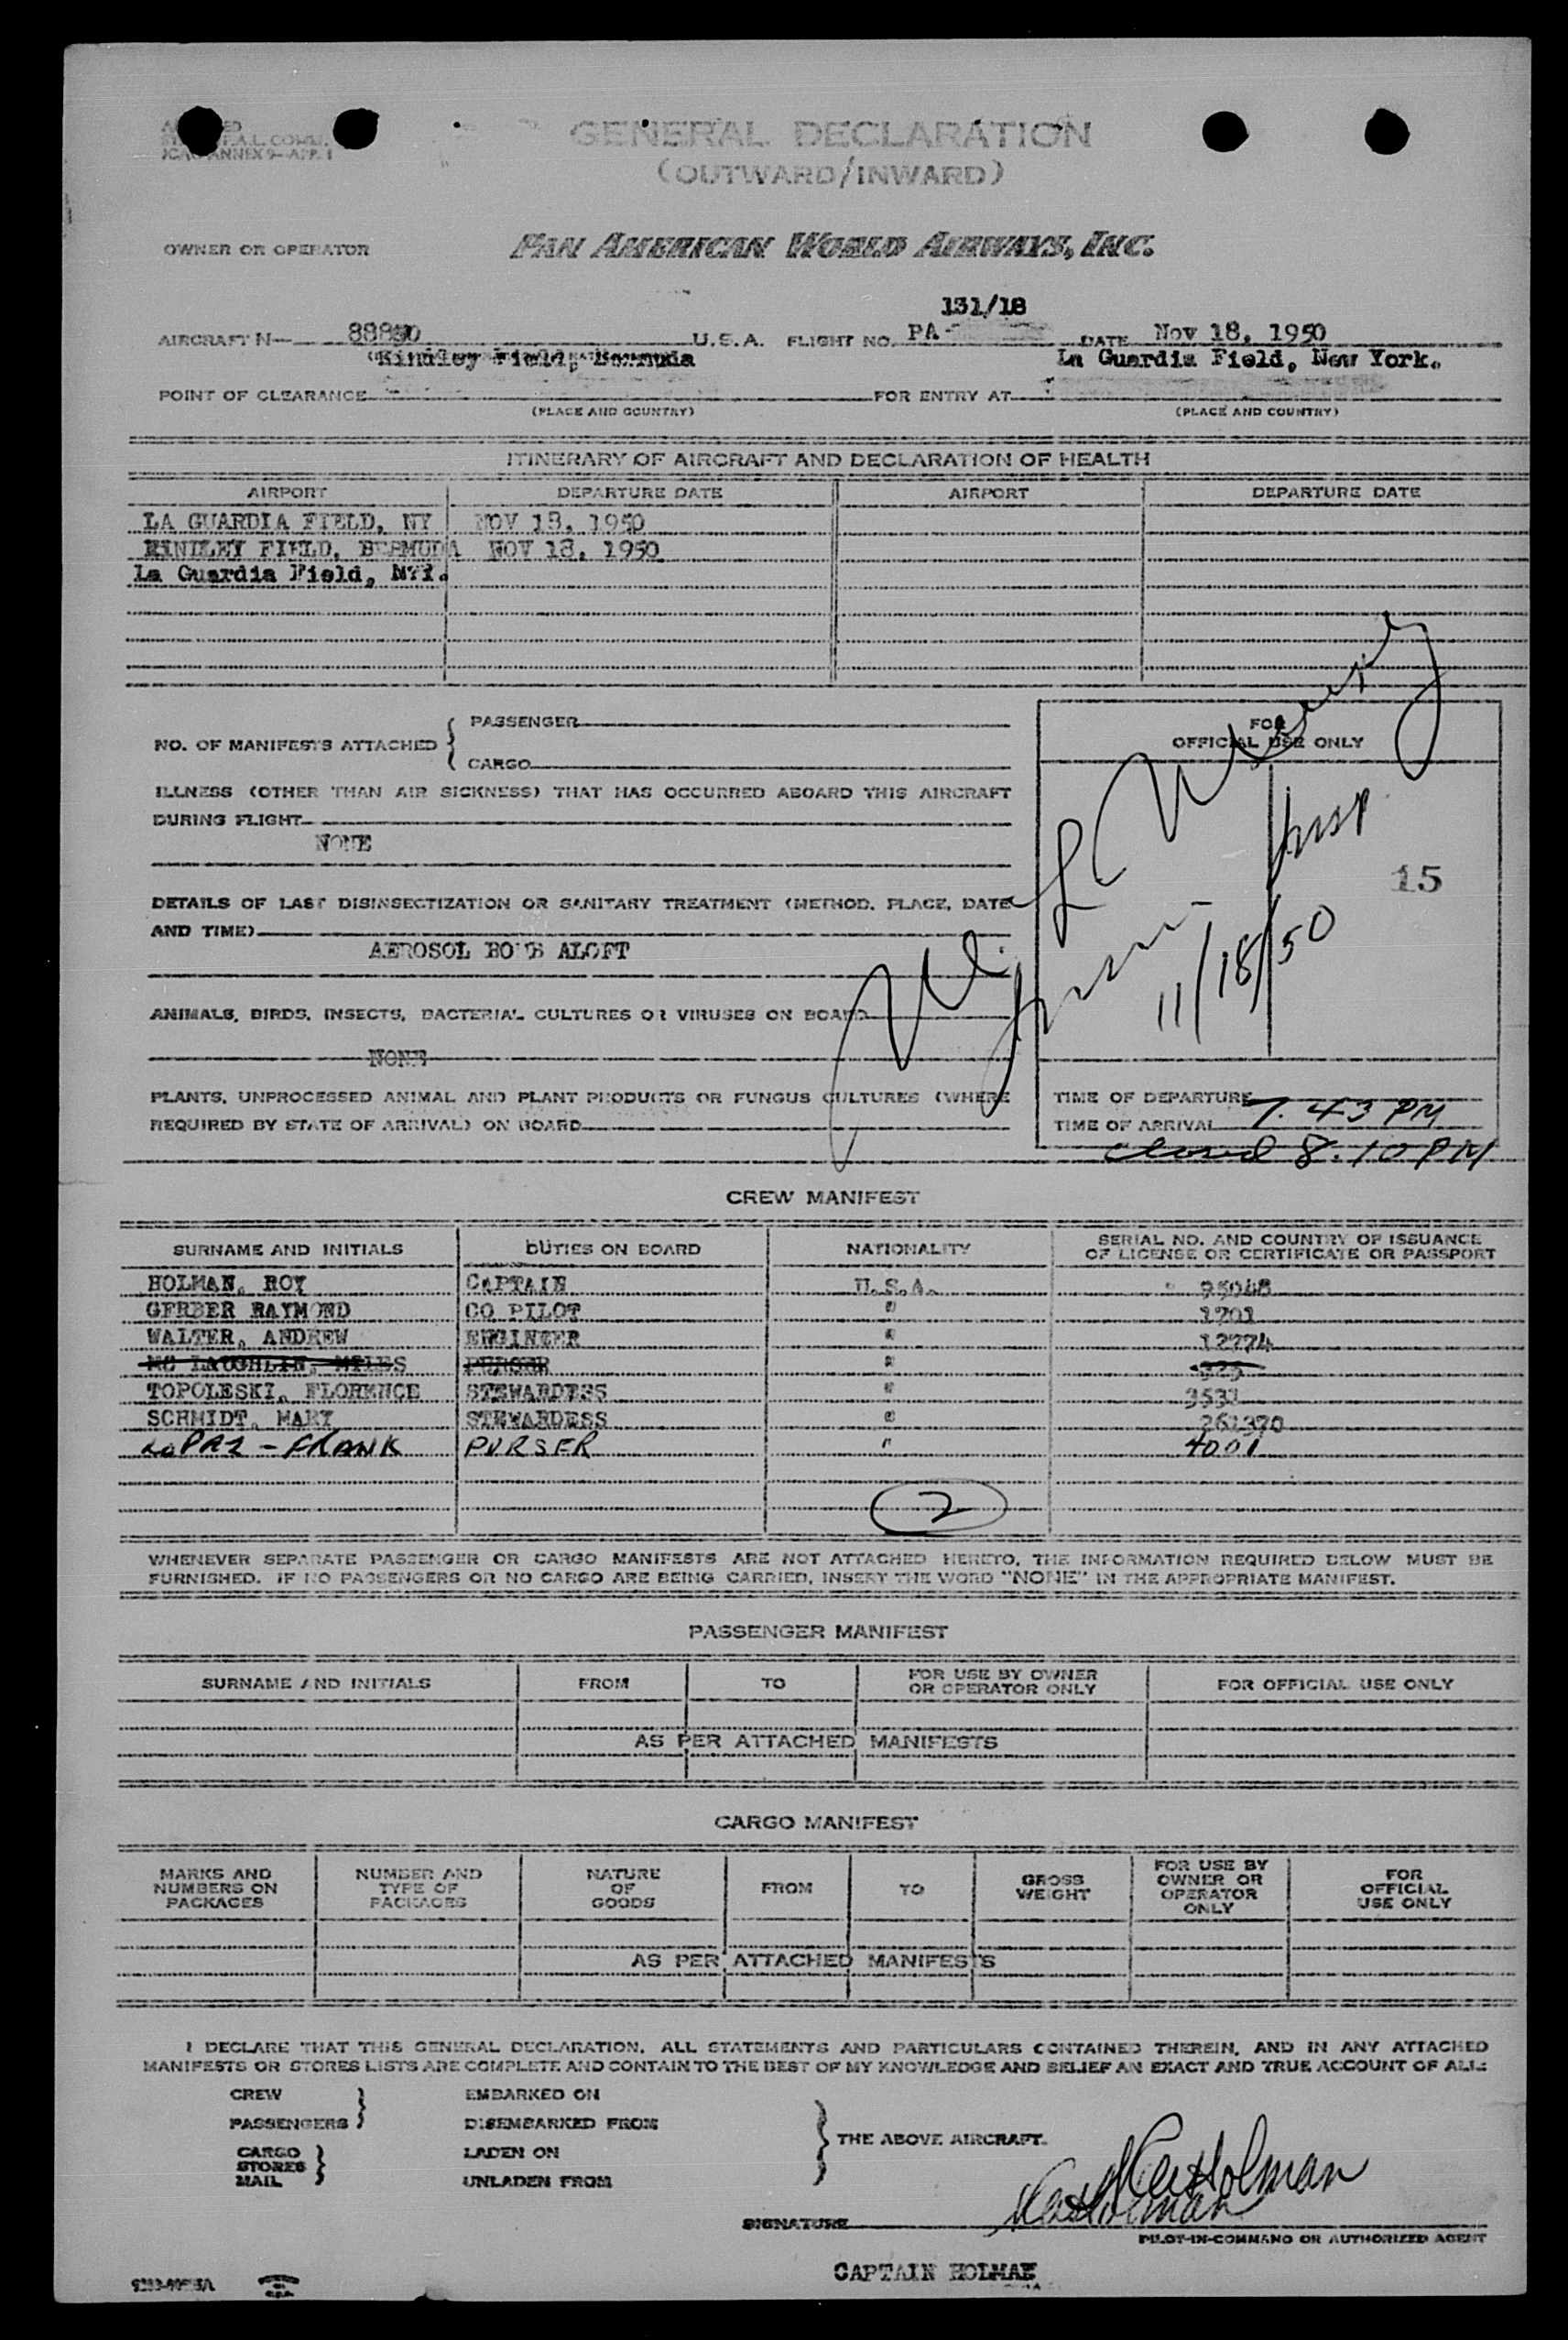 GENERAL DECLARATION
(OUTWARD/INWARD)
ICAO ANNEX 9-APP. 1
OWNER OR OPERATOR PAN AMERICAN WORLD AIRWAYS, INC.
131/18
AIRCRAFT N- U.S.A. FLIGHT NO. PA- DATE Nov 18, 1950
Kindley Field, Bermuda La Guardia Field, New York.
POINT OF CLEARANCE FOR ENTRY AT
(PLACE AND COUNTRY) (PLACE AND COUNTRY)
ITINERARY OF AIRCRAFT AND DECLARATION OF HEALTH
AIRPORT DEPARTURE DATE AIRPORT DEPARTURE DATE
LA GUARDIA FIELD, NY NOV 18, 1950
KINDLEY FIELD, BERMUDA NOV 18, 1950
La Guardia Field, NYY.
NO. OF MANIFESTS ATTACHED { PASSENGER
CARGO
ILLNESS (OTHER THAN AIR SICKNESS) THAT HAS OCCURRED ABOARD THIS AIRCRAFT
DURING FLIGHT
NONE
DETAILS OF LAST DISINSECTIZATION OR SANITARY TREATMENT (METHOD, PLACE, DATE
AND TIME)
AEROSOL BOMB ALOFT
ANIMALS, BIRDS, INSECTS, BACTERIAL CULTURES OR VIRUSES ON BOARD
NONE
PLANTS, UNPROCESSED ANIMAL AND PLANT PRODUCTS OR FUNGUS CULTURES (WHERE
REQUIRED BY STATE OF ARRIVAL) ON BOARD
FOR
OFFICIAL USE ONLY
15
11/18/50
TIME OF DEPARTURE
TIME OF ARRIVAL 7.43 PM
closed 8.10 PM
CREW MANIFEST
SURNAME AND INITIALS DUTIES ON BOARD NATIONALITY SERIAL NO. AND COUNTRY OF ISSUANCE
OF LICENSE OR CERTIFICATE OR PASSPORT
HOLMAN, ROY CAPTAIN U.S.A. 95048
GERBER RAYMOND CO PILOT " 1701
WALTER, ANDREW ENGINEER " 12774
MC LAUGHLIN, MILES PURSER "
TOPOLESKI, FLORENCE STEWARDESS " 3531
SCHMIDT, MARY STEWARDESS " 261370
FRANK PURSER " 4001
2
WHENEVER SEPARATE PASSENGER OR CARGO MANIFESTS ARE NOT ATTACHED HERETO, THE INFORMATION REQUIRED BELOW MUST BE
FURNISHED. IF NO PASSENGERS OR NO CARGO ARE BEING CARRIED, INSERT THE WORD "NONE" IN THE APPROPRIATE MANIFEST.
PASSENGER MANIFEST
SURNAME AND INITIALS FROM TO FOR USE BY OWNER
OR OPERATOR ONLY FOR OFFICIAL USE ONLY
AS PER ATTACHED MANIFESTS
CARGO MANIFEST
MARKS AND
NUMBERS ON
PACKAGES NUMBER AND
TYPE OF
PACKAGES NATURE
OF
GOODS FROM TO GROSS
WEIGHT FOR USE BY
OWNER OR
OPERATOR
ONLY FOR
OFFICIAL
USE ONLY
AS PER ATTACHED MANIFESTS
I DECLARE THAT THIS GENERAL DECLARATION, ALL STATEMENTS AND PARTICULARS CONTAINED THEREIN, AND IN ANY ATTACHED
MANIFESTS OR STORES LISTS ARE COMPLETE AND CONTAIN TO THE BEST OF MY KNOWLEDGE AND BELIEF AN EXACT AND TRUE ACCOUNT OF ALL:
CREW EMBARKED ON
PASSENGERS DISEMBARKED FROM
THE ABOVE AIRCRAFT.
CARGO LADEN ON
STORES
MAIL UNLADEN FROM
SIGNATURE Holman
PILOT-IN-COMMAND OR AUTHORIZED AGENT
CAPTAIN HOLMAN